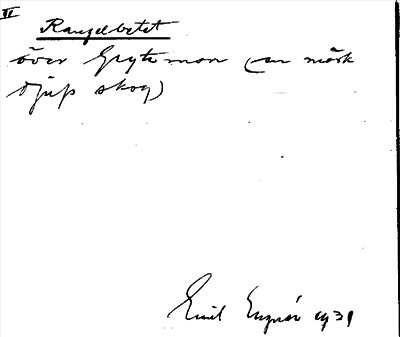 VI
Rangelbetet
över Grytmon (en mörk
djup skog)
Emil 1931